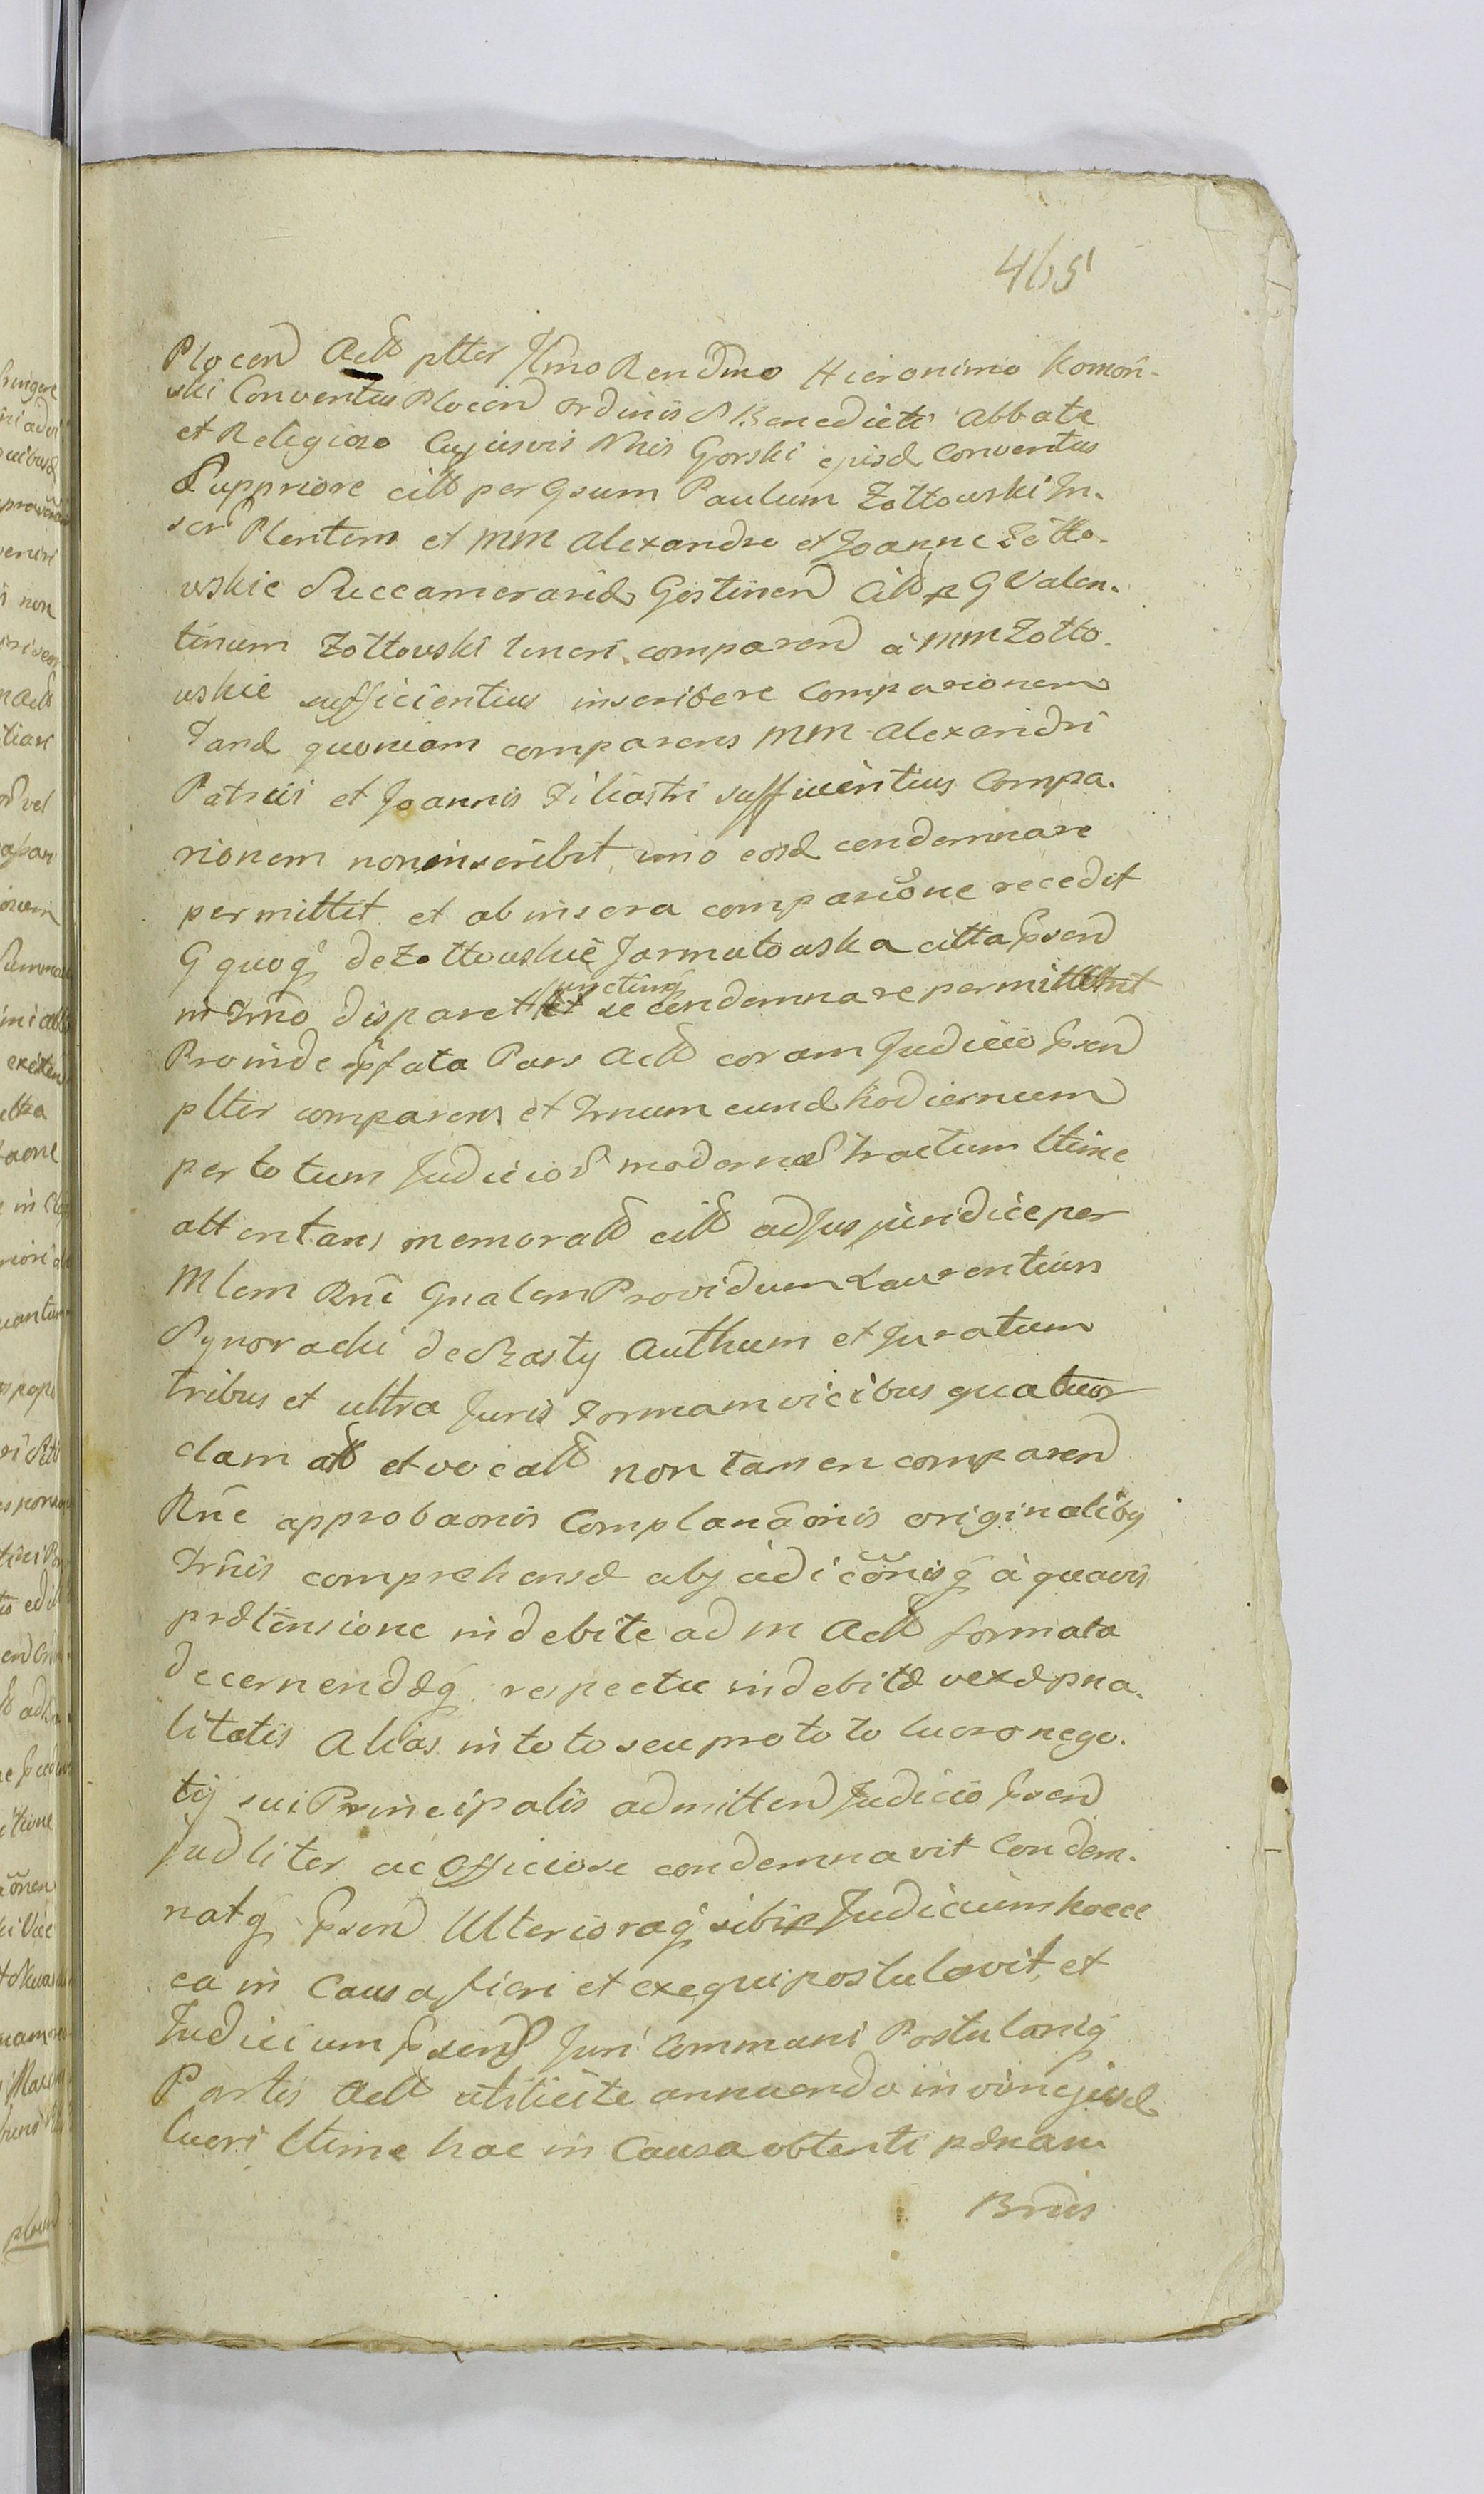 465
Plocen Actt ptter Illmo Rendmo Hieronimo Komorn-
ski Conventus Plocen Ordinis S Benedicti Abbate
et Religioso Cujusvis Nnis Gorski ejusd Conventus
Suppriore citt per Gsum Paulum Zołtowski In-
scr Plentem et MM Alexandro et Joanne Zołto-
wskie Succamerarid Gostinen Citt p G Valen-
tinum Zołtowski teneri comparen à MM Zołto-
wskie sufficientius inscribere Comparionem
Tand quoniam comparens MM Alexandri
Patrui et Joannis Filiastri sufficientius Compa-
rionem non inscribit, imo eosd condemnare
permittit et ab inscra comparione recedit
G quoq de Zołtowskie Jarmułowska citta Psend
in Trno disparet junctimq se condemnare permittit
Proinde pfata Pars Actt coram Judicio Psend
ptter comparens et Trnum eund hodiernum
per totum Judicior modernor tractum ttime
attentans memoratt citt ad Jus juridice per
Mlem Rni Gnalem Providum Laurentium
Synoracki de Szasty Authum et Juratum
tribus et ultra Juris Formam vicibus quatuor
clamatt et vocatt non tamen comparen
Rne approbaonis Complanaonis originalibq
Trnis comprehensæ abjudicõnisq à quavis
prætensione indebite ad m Actt formata
decernendæq respectu indebitæ vexæ pna-
litatis Alias in toto seu pro toto lucro nego-
tij sui Principalis admitten Judicio Psend
Judliter ac Officiose condemnavit Condem-
natq Psend Ulterioraq sibi p Judicium hocce
ea in Causa fieri et exequi postulavit, et
Judicium Psens Juri Communi Postulaoniq
Partis Actt utilicite annuendo in vim ejusd
lucri ttime hac in Causa obtenti pænam
Bnis